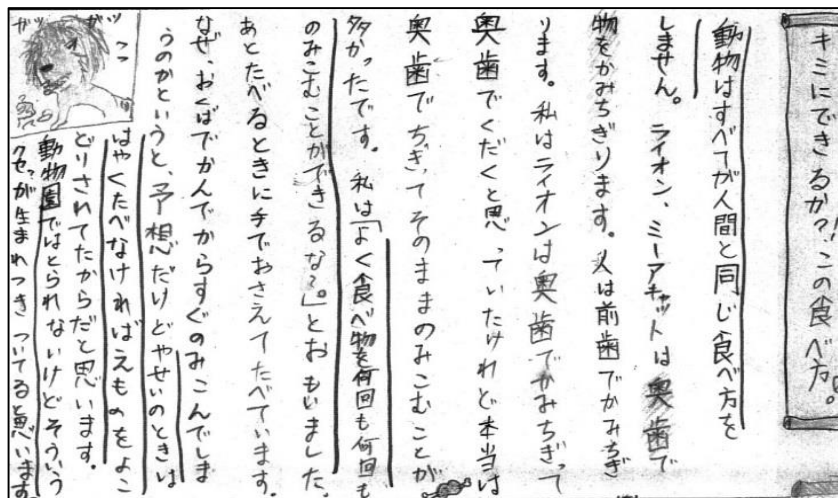 キミにできるか?!この食べ方。
動物はすべてが人間と同じ食べ方を
しません。ライオン、ミーアキャットは奥歯で
物をかみちぎります。人は前歯でかみちぎ
ります。私はライオンは奥歯でかみちぎって
奥歯でくだくと思っていたけれど本当は
奥歯でちぎってそのままのみこむことが
多かったです。私は「よく食べ物を何回も何回も
のみこむことができるな?。」とおもいました。
あとたべるときに手でおさえてたべています。
なぜ、おくばでかんでからすぐのみこんでしま
うのかというと、予想だけどやせいのときは
はやくたべなければえものをよこ
どりされてたからだと思います。
動物園ではとられないけどそういう
クセ?が生まれつきついてると思います。
ガツ
ガツ